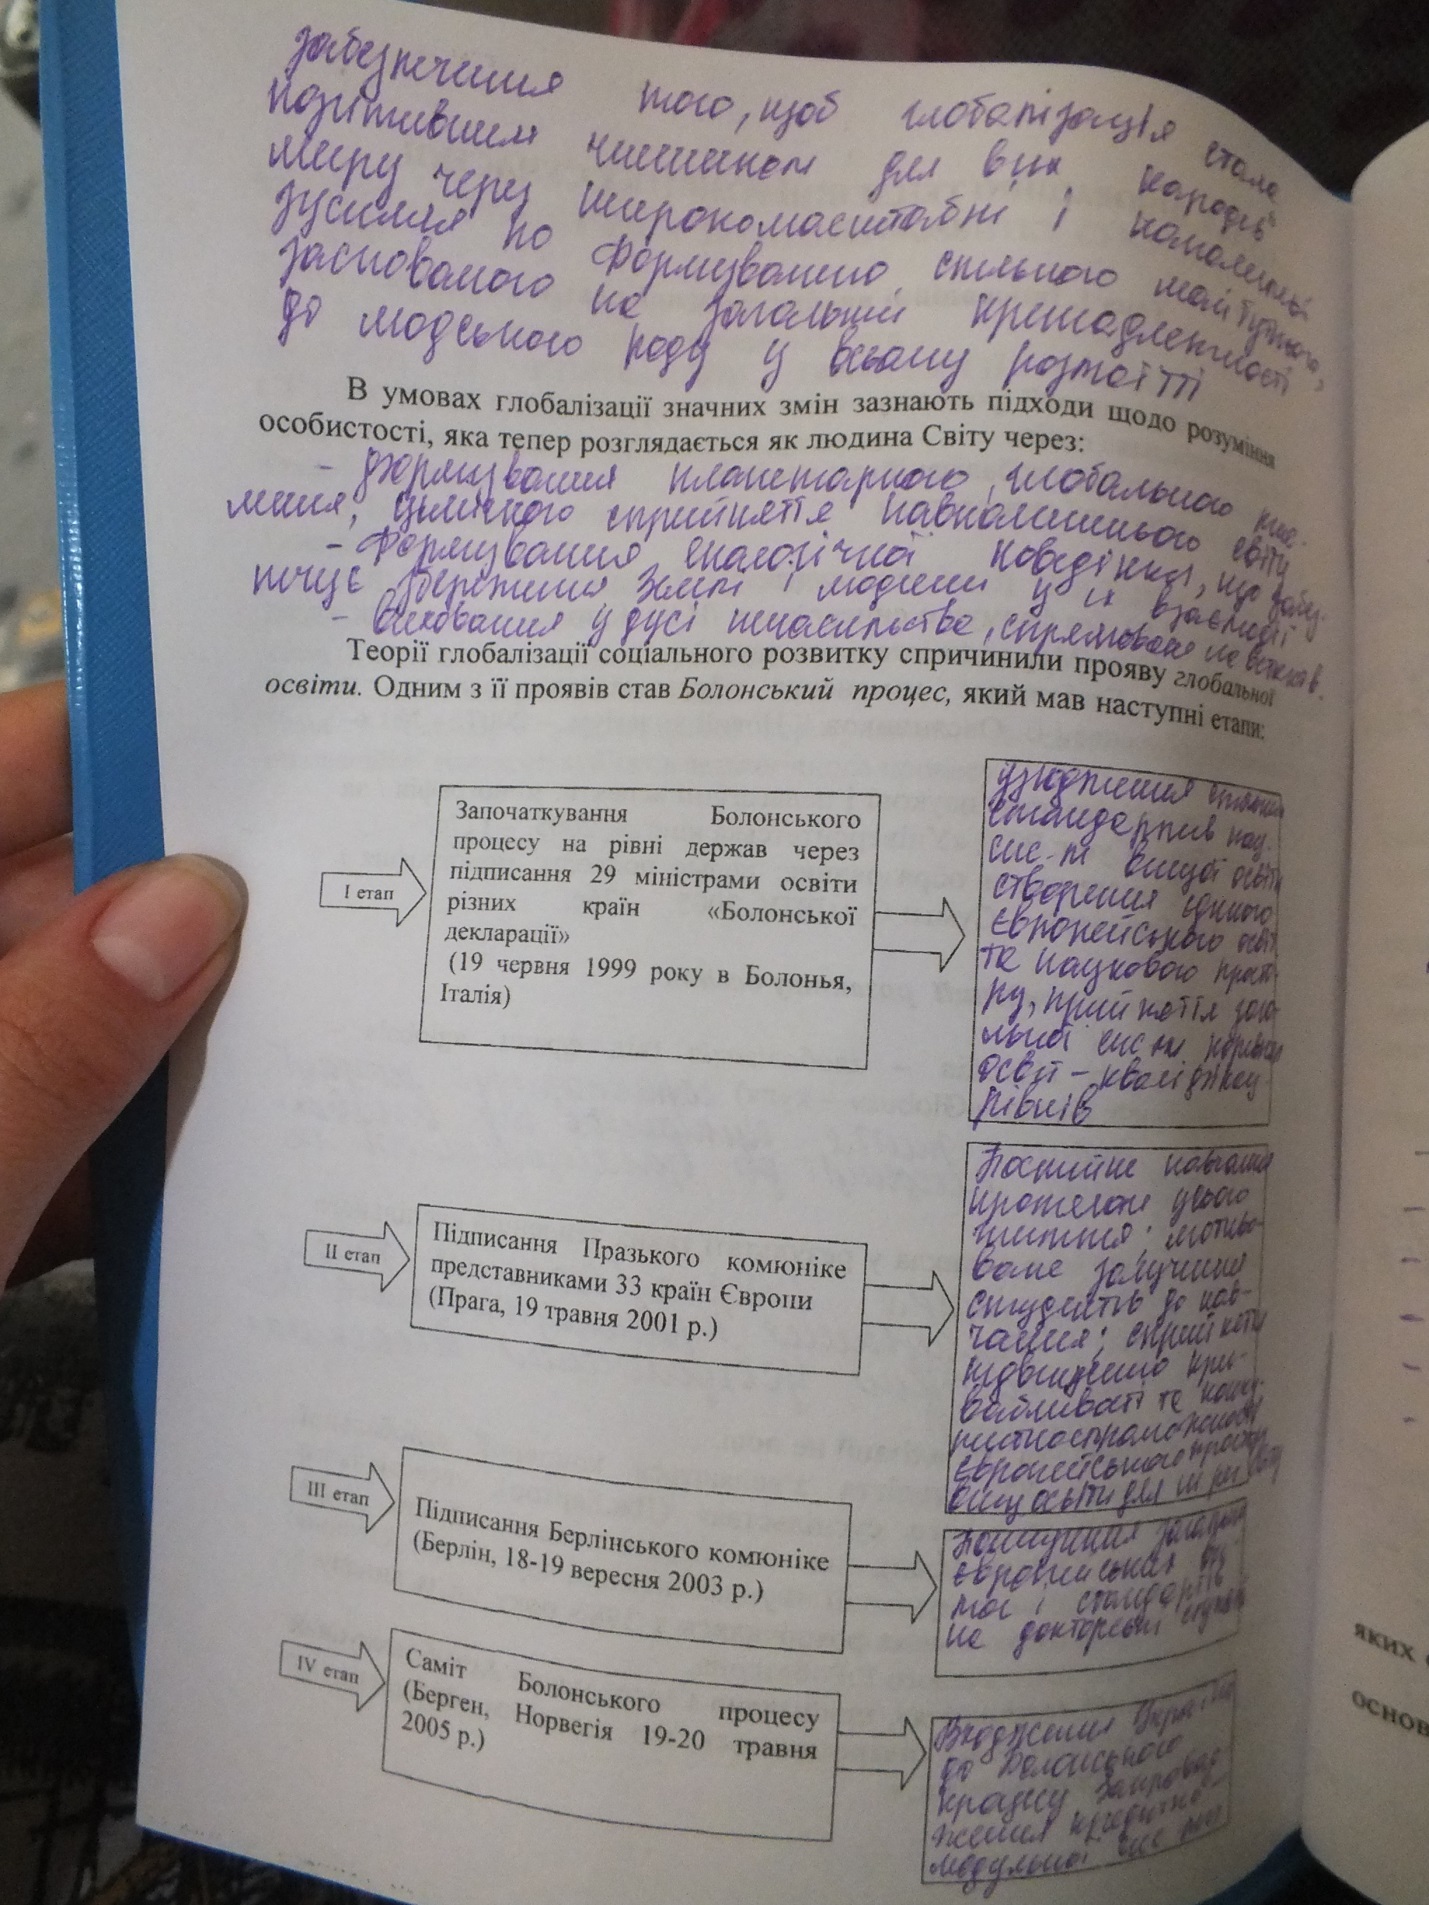 забезпечення того, щоб глобалізація стала
позитивним чинником для всіх народів
миру через широкомасштабні і наполегливі
зусилля по формуванню спільного майбутнього,
заснованого на загальній приналежності
до людського роду у всьому розмаїтті
В умовах глобалізації значних змін зазнають підходи щодо розуміння
особистості, яка тепер розглядається як людина Світу через:
- формування планетарного, глобального мис-
лення, цілісного сприйняття навколишнього світу
- Формування екологічної поведінки, що забез-
печує збереження Землі і людини у їх взаємодії
- Виховання у дусі ненасильства, спрямоване на
Теорії глобалізації соціального розвитку спричинили прояву глобальної
освіти. Одним з її проявів став Болонський процес, який мав наступні етапи:
I етап
Започаткування Болонського
процесу на рівні держав через
підписання 29 міністрами освіти
різних країн «Болонської
декларації»
(19 червня 1999 року в Болонья,
Італія)
узгодження спільних
стандартів нац.
сис-ми вищої освіти
створення єдиного
європейського освіт
та наукового просто-
ру, прийняття зага-
льної сис-ми порівнян
освіт – кваліфікац.
рівнів
II етап
Підписання Празького комюніке
представниками 33 країн Європи
(Прага, 19 травня 2001 р.)
Постійне навчання
протягом усього
життя; мотиво-
ване залучення
студентів до нав-
чання; сприяння
підвищенню при-
вабливості та конку-
рентноспроможності
європейського простору
вищ освіти для
III етап
Підписання Берлінського комюніке
(Берлін, 18-19 вересня 2003 р.)
Поширення загально
європейських ви-
мог і стандартів
на докторські ступені
IV етап
Саміт Болонського процесу
(Берген, Норвегія 19-20 травня
2005 р.)
Входження України
до Болонського
процесу Запровад-
ження кредитно-
модульної сис-ми
яких
основ